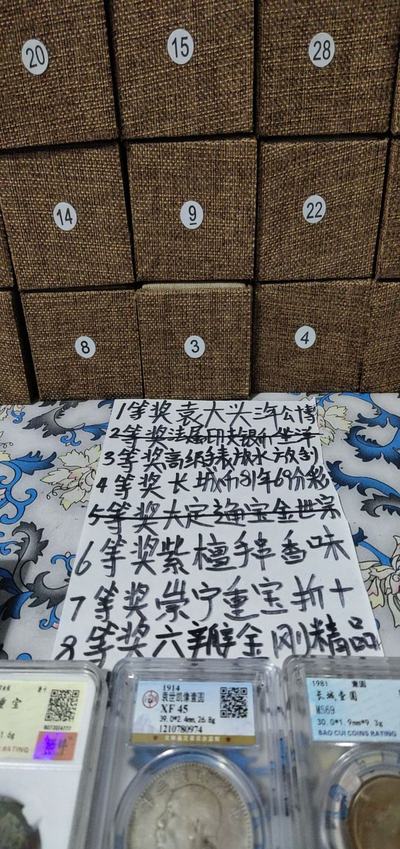 20
15
28
14
9
22
8
3
4
1等奖袁大头三年公博
2等奖法属印支银币坐洋
3等奖高级手表放水
4等奖长城币81年69分彩
5等奖大定通宝金世宗
6等奖紫檀手串香味
7等奖崇宁重宝折十
8等奖六瓣金刚精品
重宝
1.6g
RATING
1914
袁世凯像壹圆
XF 45
39.0*2.4mm, 26.8g
1210780974
1981 壹圆
长城壹圆
MS69
30.0*1.9mm*9.3g
BAO CUI COINS RATING